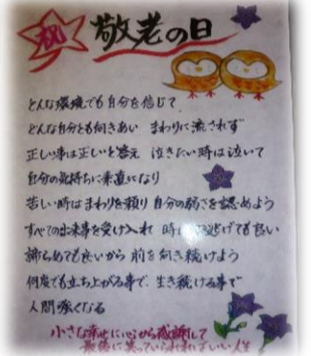 祝 敬老の日
どんな環境でも自分を信じて
どんな自分とも向きあい まわりに流されず
正しい事は正しいと答え 泣きたい時は泣いて
自分の気持ちに素直になり
苦しい時はまわりを頼り 自分の弱さを認めよう
すべての出来事を受け入れ 時には逃げても良い
諦らめても良いから 前を向き続けよう
何度でも立ち上がる事で、生き続ける事で
人間強くなる
小さな幸せに心から感謝して
最後に笑っていられればいい人生